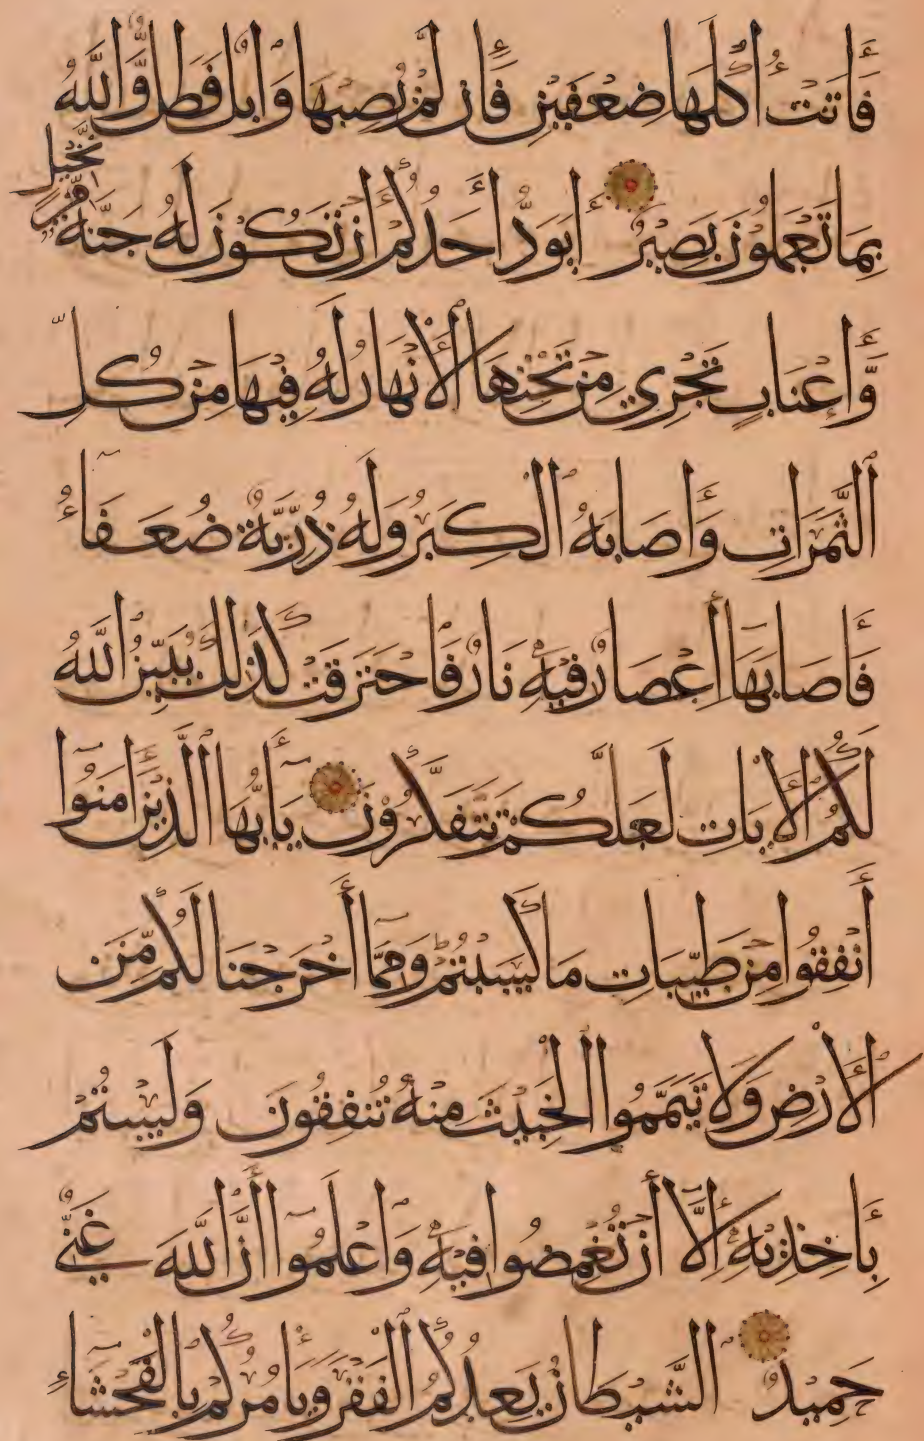 فَأَتَتْ أُكُلَهَا ضِعْفَيْنِ فَإِنْ لَّمْ يُصِبْهَا وَابِلٌ فَطَلٌّ وَّاللَّهُ
بِمَا تَعْمَلُونَ بَصِيرٌ أَيَوَدُّ أَحَدُكُمْ أَنْ تَكُونَ لَهُ جَنَّةٌ مِّن نَّخِيلٍ
وَّأَعْنَابٍ تَجْرِي مِنْ تَحْتِهَا الْأَنْهَارُ لَهُ فِيهَا مِنْ كُلِّ
الثَّمَرَاتِ وَأَصَابَهُ الْكِبَرُ وَلَهُ ذُرِّيَّةٌ ضُعَفَاءُ
فَأَصَابَهَا إِعْصَارٌ فِيهِ نَارٌ فَاحْتَرَقَتْ كَذَلِكَ يُبَيِّنُ اللَّهُ
لَكُمُ الْأَيَاتِ لَعَلَّكُمْ تَتَفَكَّرُونَ يَاأَيُّهَا الَّذِينَ أَمَنُوا
أَنْفِقُوا مِنْ طَيِّبَاتِ مَا كَسَبْتُمْ وَمِمَّا أَخْرَجْنَا لَكُمْ مِّنَ
الْأَرْضِ وَلَا تَيَمَّمُوا الْخَبِيثَ مِنْهُ تُنْفِقُونَ وَلَسْتُمْ
بِأَخِذِيهِ إِلَّا أَنْ تُغْمِضُوا فِيهِ وَاعْلَمُوا أَنَّ اللَّهَ غَنِيٌّ
حَمِيدٌ الشَّيْطَانُ يَعِدُكُمُ الْفَقْرَ وَيَأْمُرُكُمْ بِالْفَحْشَاءِ